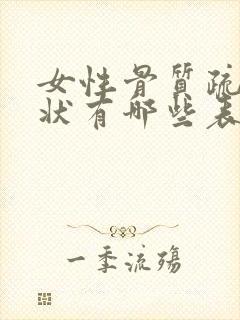 女性骨质疏
状有哪些表
一季流殇